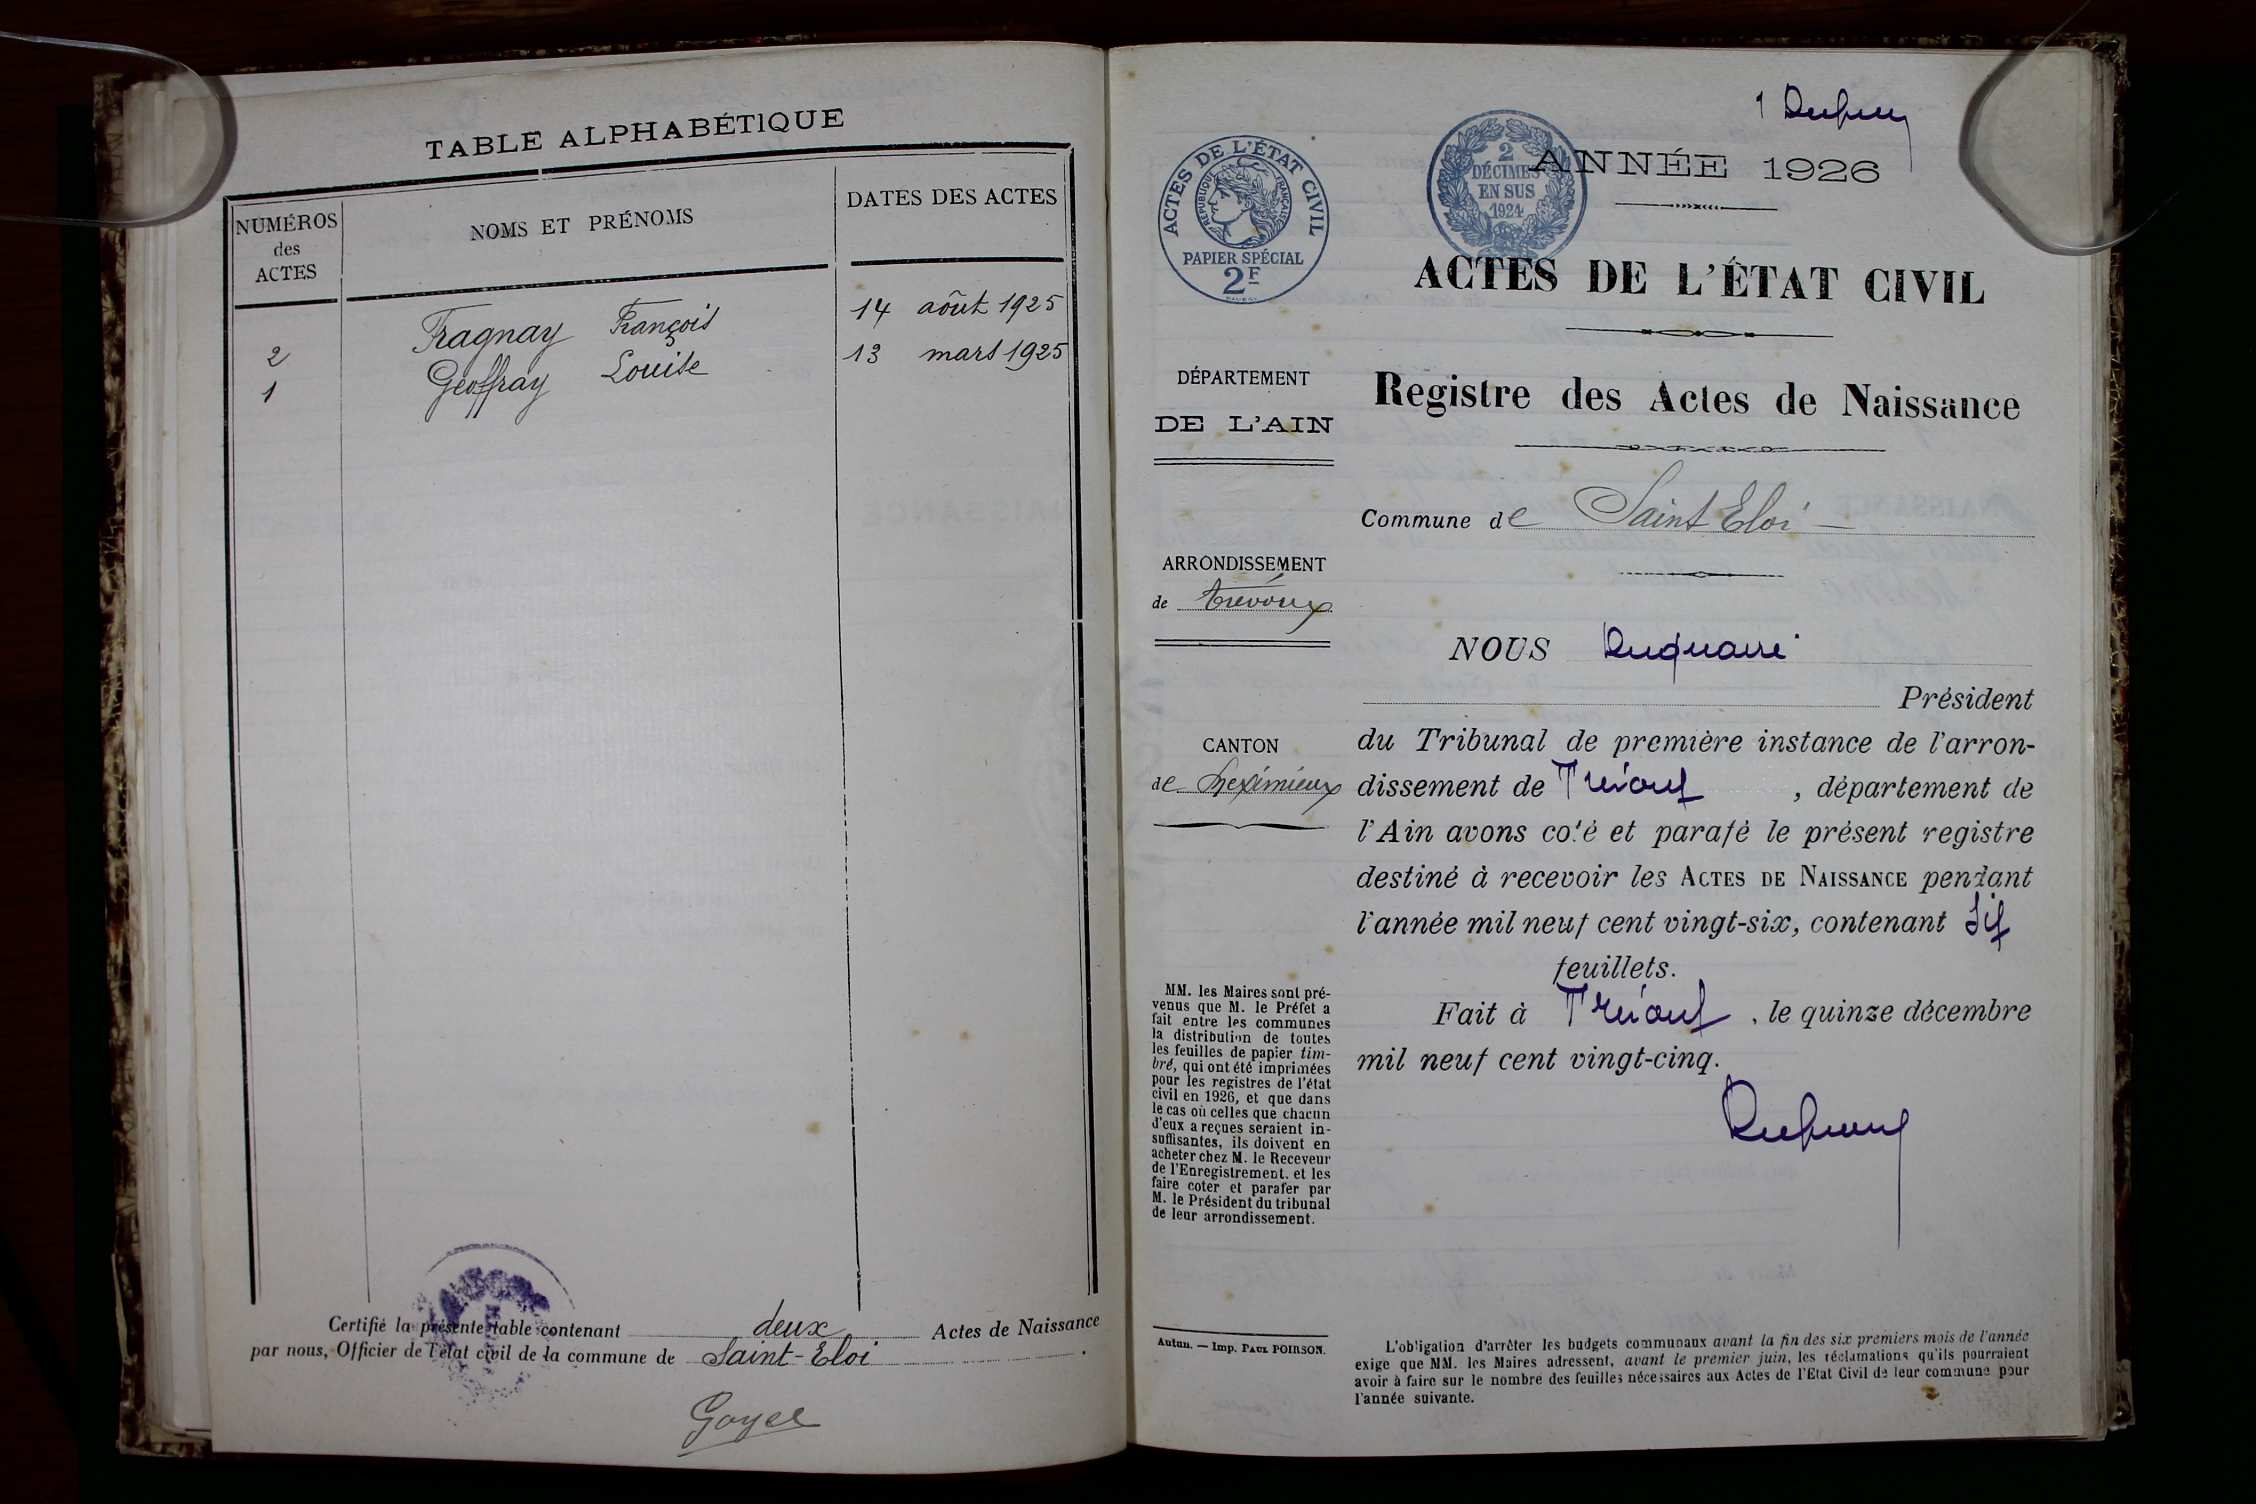 TABLE ALPHABÉTIQUE
NUMÉROS
des
ACTES
NOMS ET PRÉNOMS
DATES DES ACTES
2 Fragnay François 14 août 1925
1 Geoffray Louise 13 mars 1925
Certifié la présente table contenant deux Actes de Naissance
par nous, Officier de l'état civil de la commune de Saint-Eloi .
Goyer
1
ACTES DE L'ÉTAT CIVIL
RÉPUBLIQUE FRANÇAISE
PAPIER SPÉCIAL
2F
2
DÉCIMES
EN SUS
1924
ANNÉE 1926
ACTES DE L'ÉTAT CIVIL
Registre des Actes de Naissance
Commune de Saint Eloi
DÉPARTEMENT
DE L'AIN
ARRONDISSEMENT
de Trévoux
CANTON
de Meximieux
NOUS Duquaire
Président
du Tribunal de première instance de l'arron-
dissement de Trévoux , département de
l'Ain avons coté et parafé le présent registre
destiné à recevoir les ACTES DE NAISSANCE pendant
l'année mil neuf cent vingt-six, contenant Six
feuillets.
Fait à Trévoux , le quinze décembre
mil neuf cent vingt-cinq.
MM. les Maires sont pré-
venus que M. le Préfet a
fait entre les communes
la distribution de toutes
les feuilles de papier tim-
bré, qui ont été imprimées
pour les registres de l'état
civil en 1926, et que dans
le cas où celles que chacun
d'eux a reçues seraient in-
suffisantes, ils doivent en
acheter chez M. le Receveur
de l'Enregistrement. et les
faire coter et parafer par
M. le Président du tribunal
de leur arrondissement.
Autun. — Imp. PAUL POIRSON.
L'obligation d'arrêter les budgets communaux avant la fin des six premiers mois de l'année
exige que MM. les Maires adressent, avant le premier juin, les réclamations qu'ils pourraient
avoir à faire sur le nombre des feuilles nécessaires aux Actes de l'Etat Civil de leur commune pour
l'année suivante.